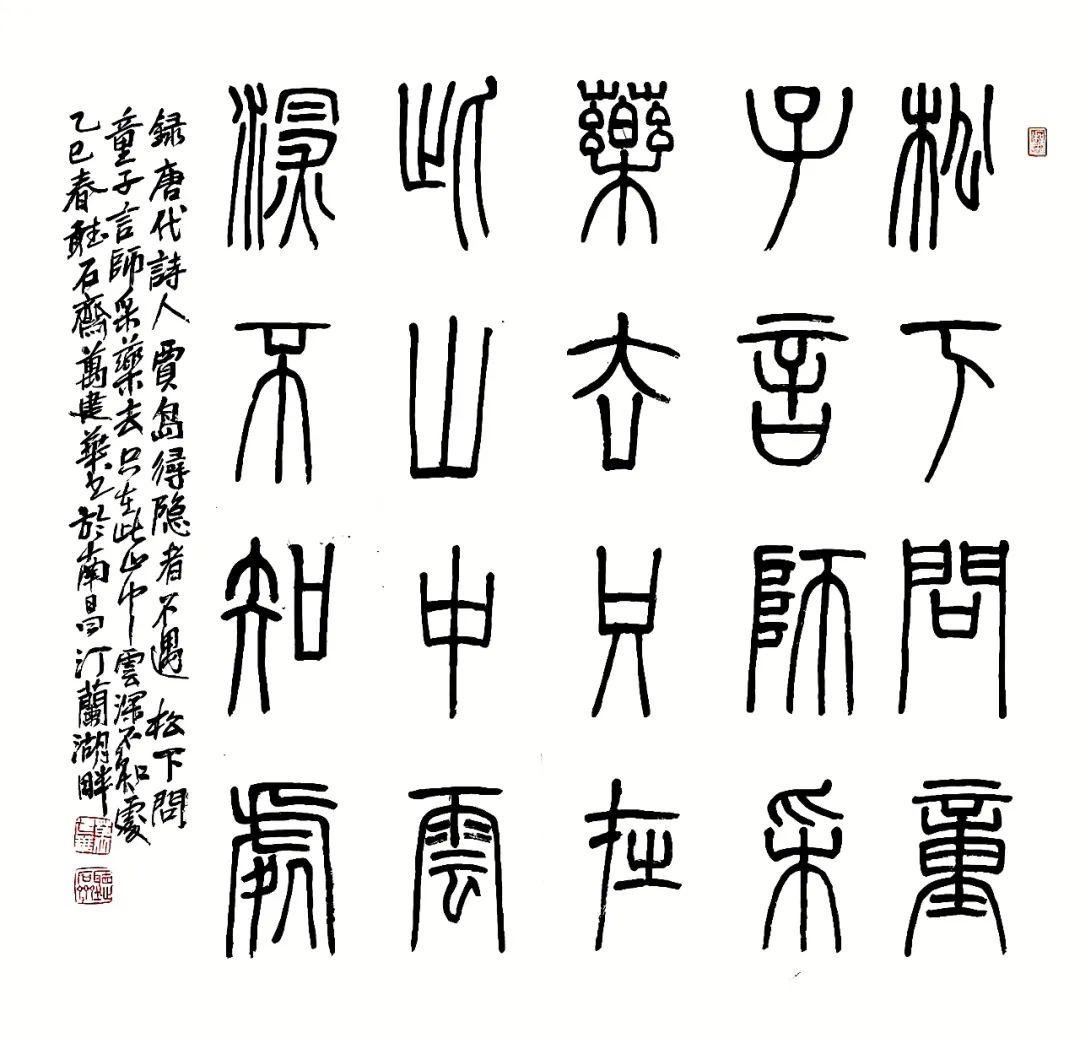 松下問童
子言師采
藥去只在
此山中雲
深不知處
録唐代詩人賈島尋隐者不遇 松下問
童子言師采藥去只在此山中雲深不知處
乙巳春聽石齋萬建華书於南昌汀蘭湖畔